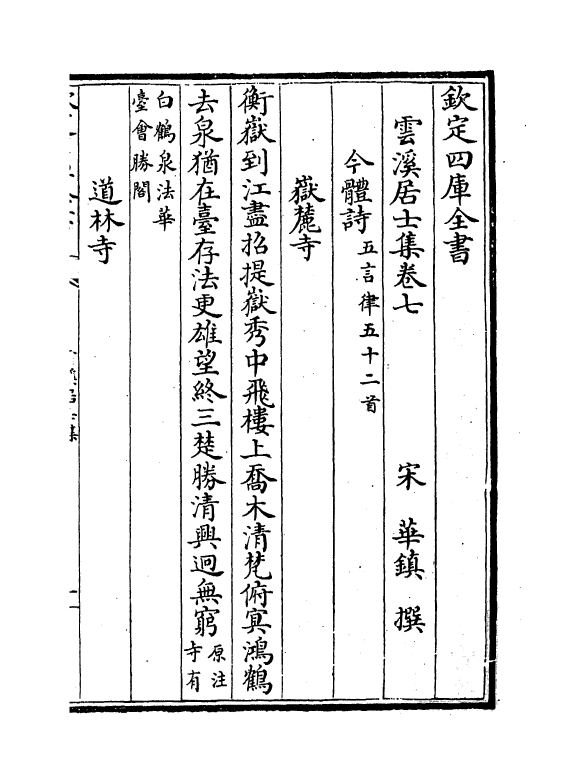 欽定四庫全書
雲溪居士集卷七 宋 華鎮 撰
今體詩 五言律五十二首
嶽麓寺
衡嶽到江盡招提嶽秀中飛樓上喬木清梵俯冥鴻鶴
去泉猶在臺存法更雄望終三楚勝清興迥無窮
原注
寺有
白鶴泉法華
臺會勝閣
道林寺